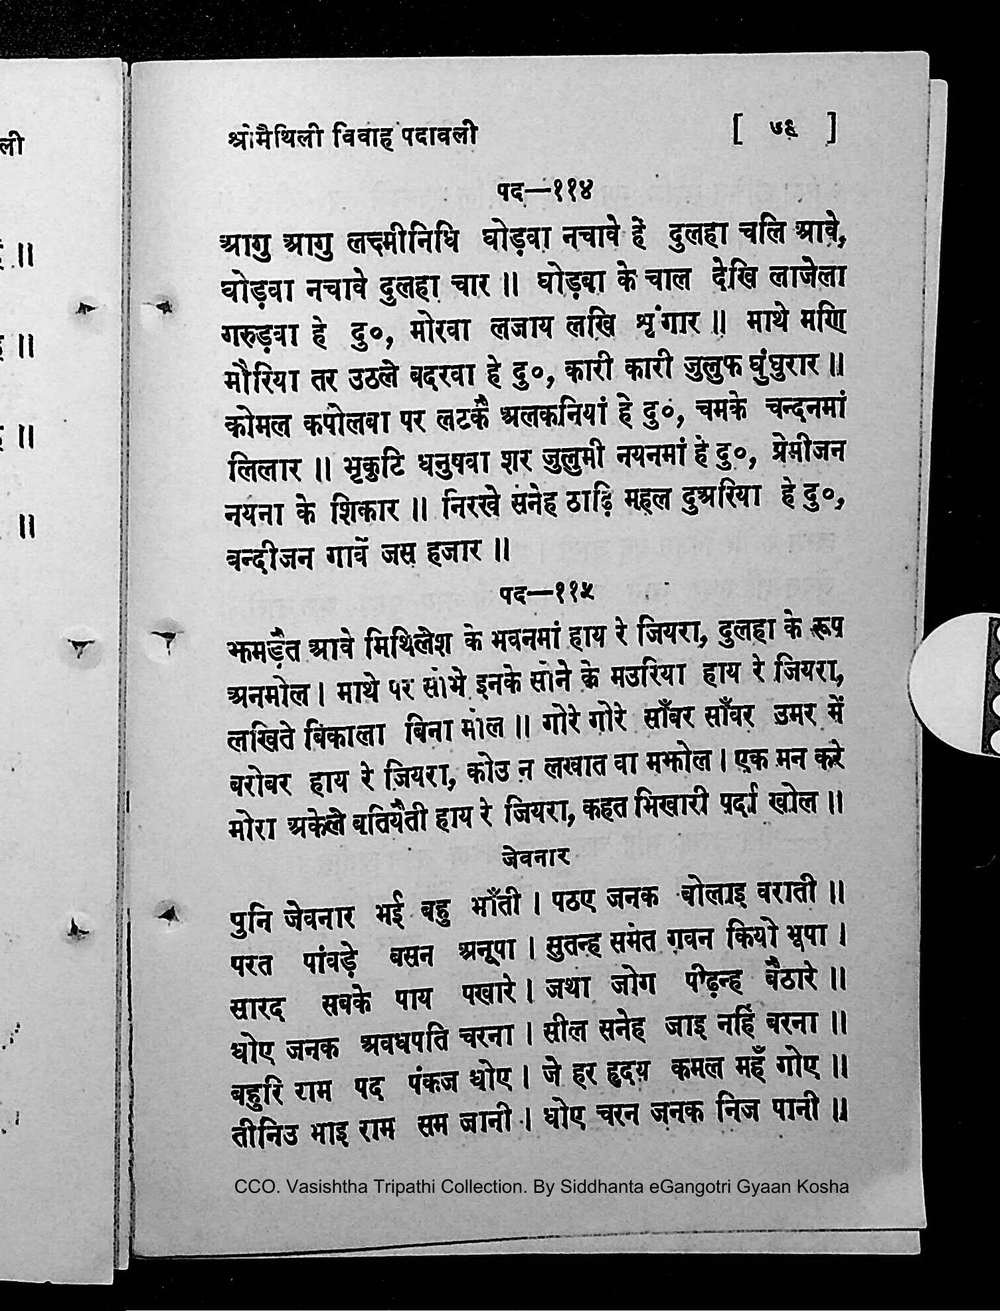 श्रीमैथिली विवाह पदावली [ ७६ ]
पद—११४
आगु आगु लक्ष्मीनिधि घोड़वा नचावे हें दुलहा चलि आवे,
घोड़वा नचावे दुलहा चार ॥ घोड़वा के चाल देखि लाजेला
गरुड़वा हे दु०, मोरवा लजाय लखि शृंगार ॥ माथे मणि
मौरिया तर उठले बदरवा हे दु०, कारी कारी जुलुफ घुंघुरार ॥
कोमल कपोलवा पर लटकै अलकनियां हे दु०, चमके चन्दनमां
लिलार ॥ भृकुटि धनुषवा शर जुलुमी नयनमां हे दु०, प्रेमीजन
नयना के शिकार ॥ निरखे सनेह ठाढ़ि महल दुअरिया हे दु०,
वन्दीजन गावें जस हजार ॥
पद—११५
झमड़ैत आवे मिथिलेश के भवनमां हाय रे जियरा, दुलहा के रूप
अनमोल । माथे पर सोभे इनके सोने के मउरिया हाय रे जियरा,
लखिते बिकाला बिना मोल ॥ गोरे गोरे साँवर साँवर उमर में
बरोबर हाय रे जियरा, कोउ न लखात वा मझोल । एक मन करे
मोरा अकेले बतियैती हाय रे जियरा, कहत भिखारी पर्दा खोल ॥
जेवनार
पुनि जेवनार भई बहु भाँती । पठए जनक बोलाइ वराती ॥
परत पांवड़े बसन अनूपा । सुतन्ह समेत गवन कियो भूपा ।
सारद सबके पाय पखारे । जथा जोग पीढ़न्ह बैठारे ॥
धोए जनक अवधपति चरना । सील सनेह जाइ नहिं बरना ॥
बहुरि राम पद पंकज धोए । जे हर हृदय कमल महँ गोए ॥
तीनिउ भाइ राम सम जानी । धोए चरन जनक निज पानी ॥
CCO. Vasishtha Tripathi Collection. By Siddhanta eGangotri Gyaan Kosha